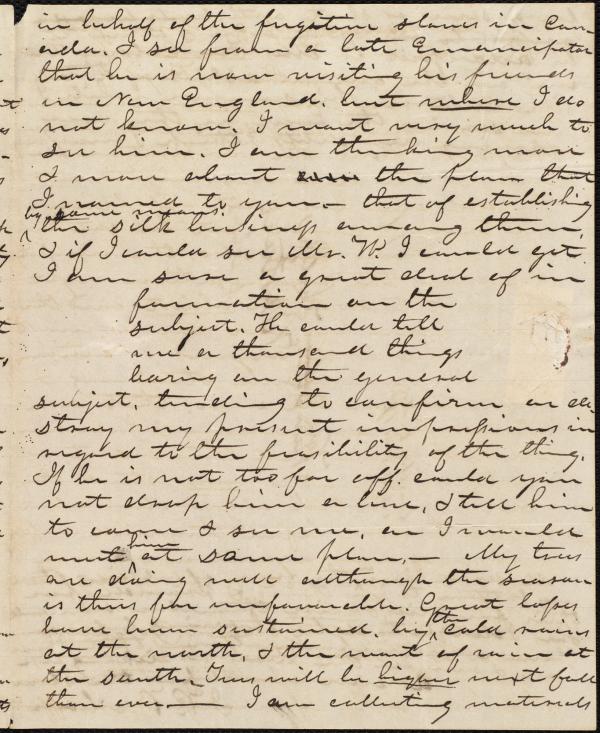 in behalf of the fugitive slaves in Can-
ada. I see from a late Emancipator
that he is now visiting his friends
in New England. but where I do
not know. I want very much to
see him. I am thinking more
& more about the plan that
I named to you – that of establishing
by some means
the silk business among them,
& if I could see Mr. W. I could get
I am sure a great deal of in
formation on the
subject. He could tell
me a thousand things
baring on the general
subject, tending to confirm or de-
stroy my present impressions in
regard to the feasibility of the thing.
If he is not too far off. could you
not drop him a line, & tell him
to come & see me, or I would
meet him at some place, – My trees
are doing well although the season
is thus far unfavorable. Great losses
have been sustained. by the cold rains
at the north, & the want of rain at
the south. Trees will be higher next fall
than ever — I am collecting materials